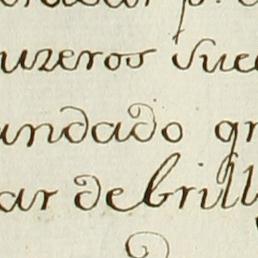 uzeros suc
undado qu
ar de brill